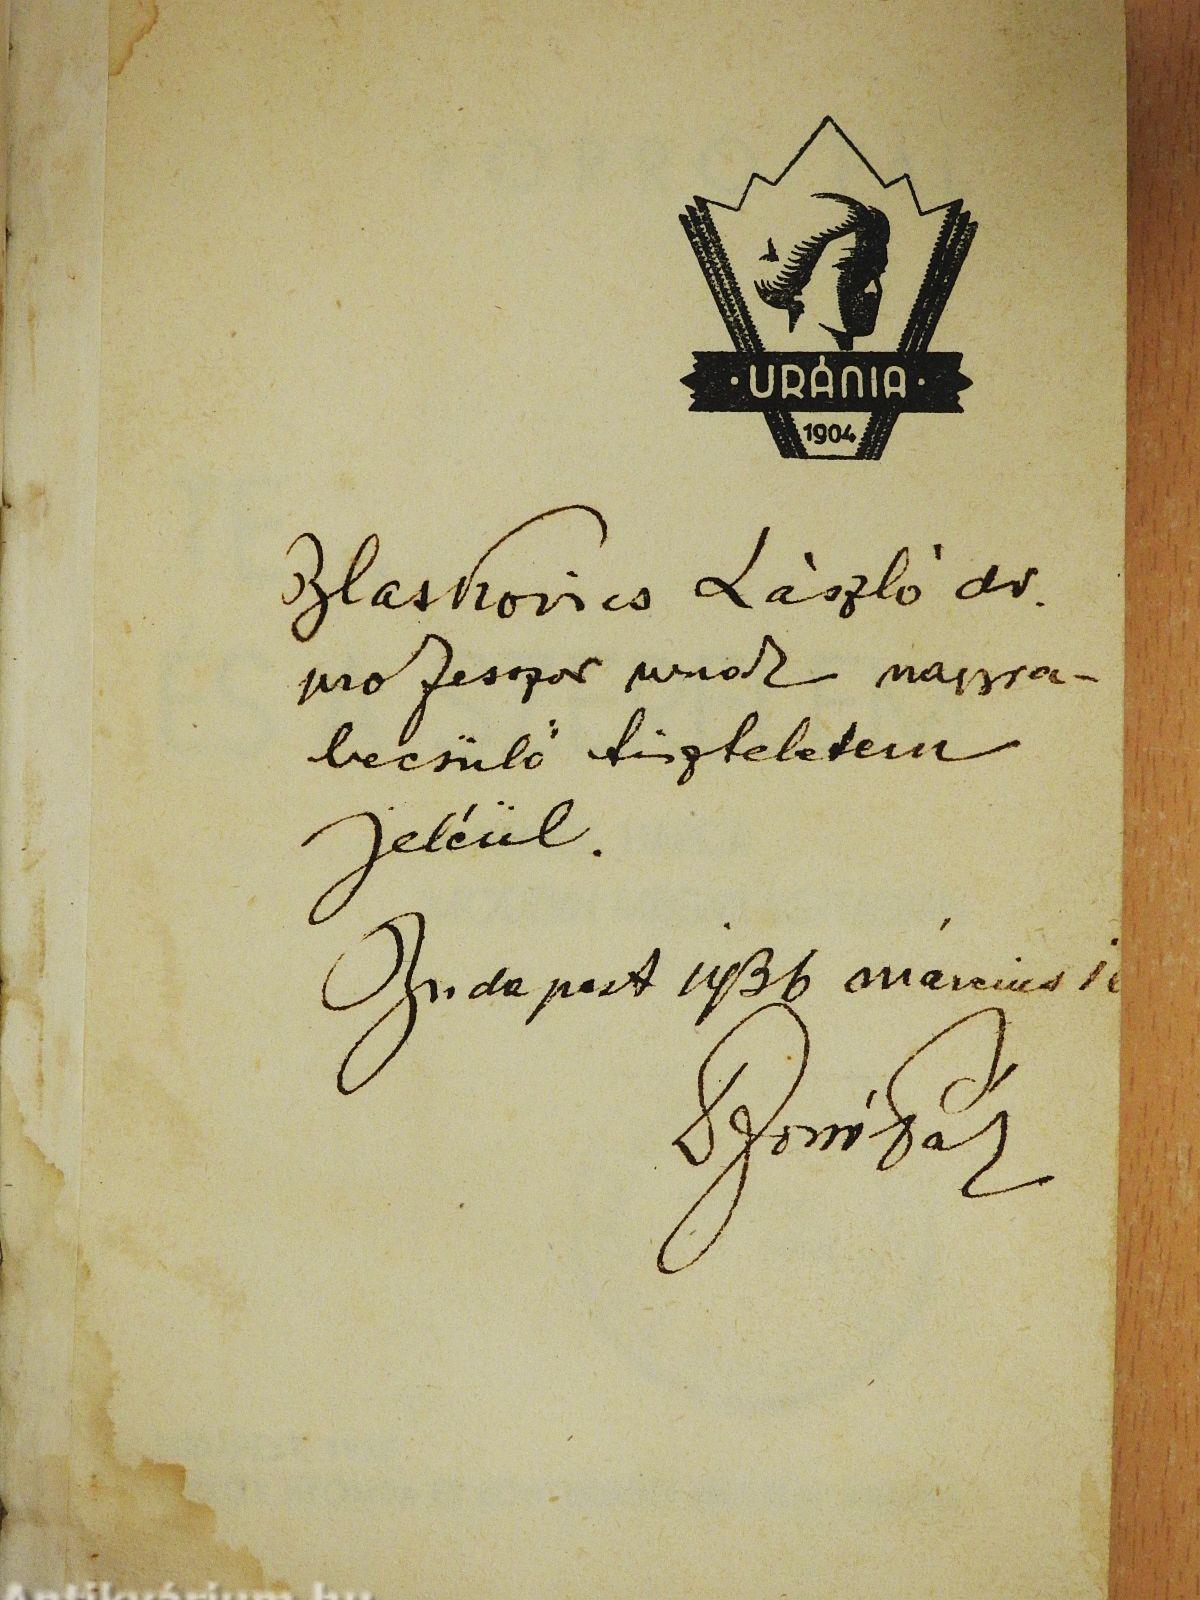 · URÁNIA ·
1904
Blaskovics László dr.
professzor urnak nagyra-
becsülő tiszteletem
jeléül.
Budapest 1936 március
Antikvárium.hu